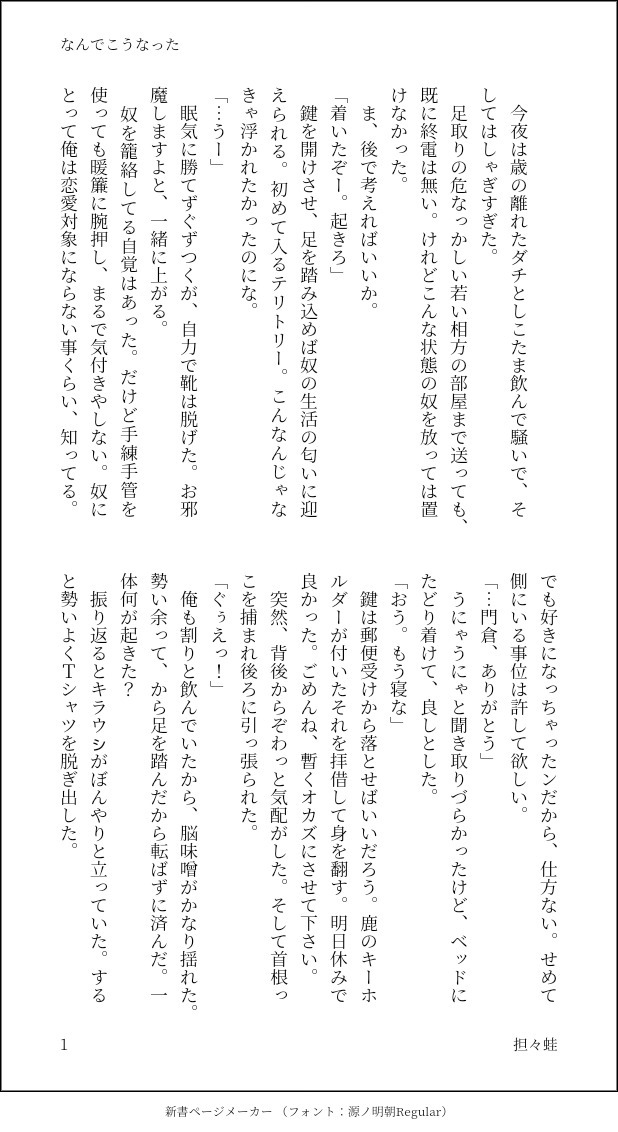 なんでこうなった
　今夜は歳の離れたダチとしこたま飲んで騒いで、そ
してはしゃぎすぎた。
　足取りの危なっかしい若い相方の部屋まで送っても、
既に終電は無い。けれどこんな状態の奴を放っては置
けなかった。
　ま、後で考えればいいか。
「着いたぞー。起きろ」
　鍵を開けさせ、足を踏み込めば奴の生活の匂いに迎
えられる。初めて入るテリトリー。こんなんじゃな
きゃ浮かれたかったのにな。
「…うー」
　眠気に勝てずぐずつくが、自力で靴は脱げた。お邪
魔しますよと、一緒に上がる。
　奴を籠絡してる自覚はあった。だけど手練手管を
使っても暖簾に腕押し、まるで気付きやしない。奴に
とって俺は恋愛対象にならない事くらい、知ってる。
でも好きになっちゃったンだから、仕方ない。せめて
側にいる事位は許して欲しい。
「…門倉、ありがとう」
　うにゃうにゃと聞き取りづらかったけど、ベッドに
たどり着けて、良しとした。
「おう。もう寝な」
　鍵は郵便受けから落とせばいいだろう。鹿のキーホ
ルダーが付いたそれを拝借して身を翻す。明日休みで
良かった。ごめんね、暫くオカズにさせて下さい。
　突然、背後からぞわっと気配がした。そして首根っ
こを捕まれ後ろに引っ張られた。
「ぐぅえっ！」
　俺も割りと飲んでいたから、脳味噌がかなり揺れた。
勢い余って、から足を踏んだから転ばずに済んだ。一
体何が起きた？
　振り返るとキラウㇱがぼんやりと立っていた。する
と勢いよくTシャツを脱ぎ出した。
1
担々蛙
新書ページメーカー（フォント：源ノ明朝Regular）